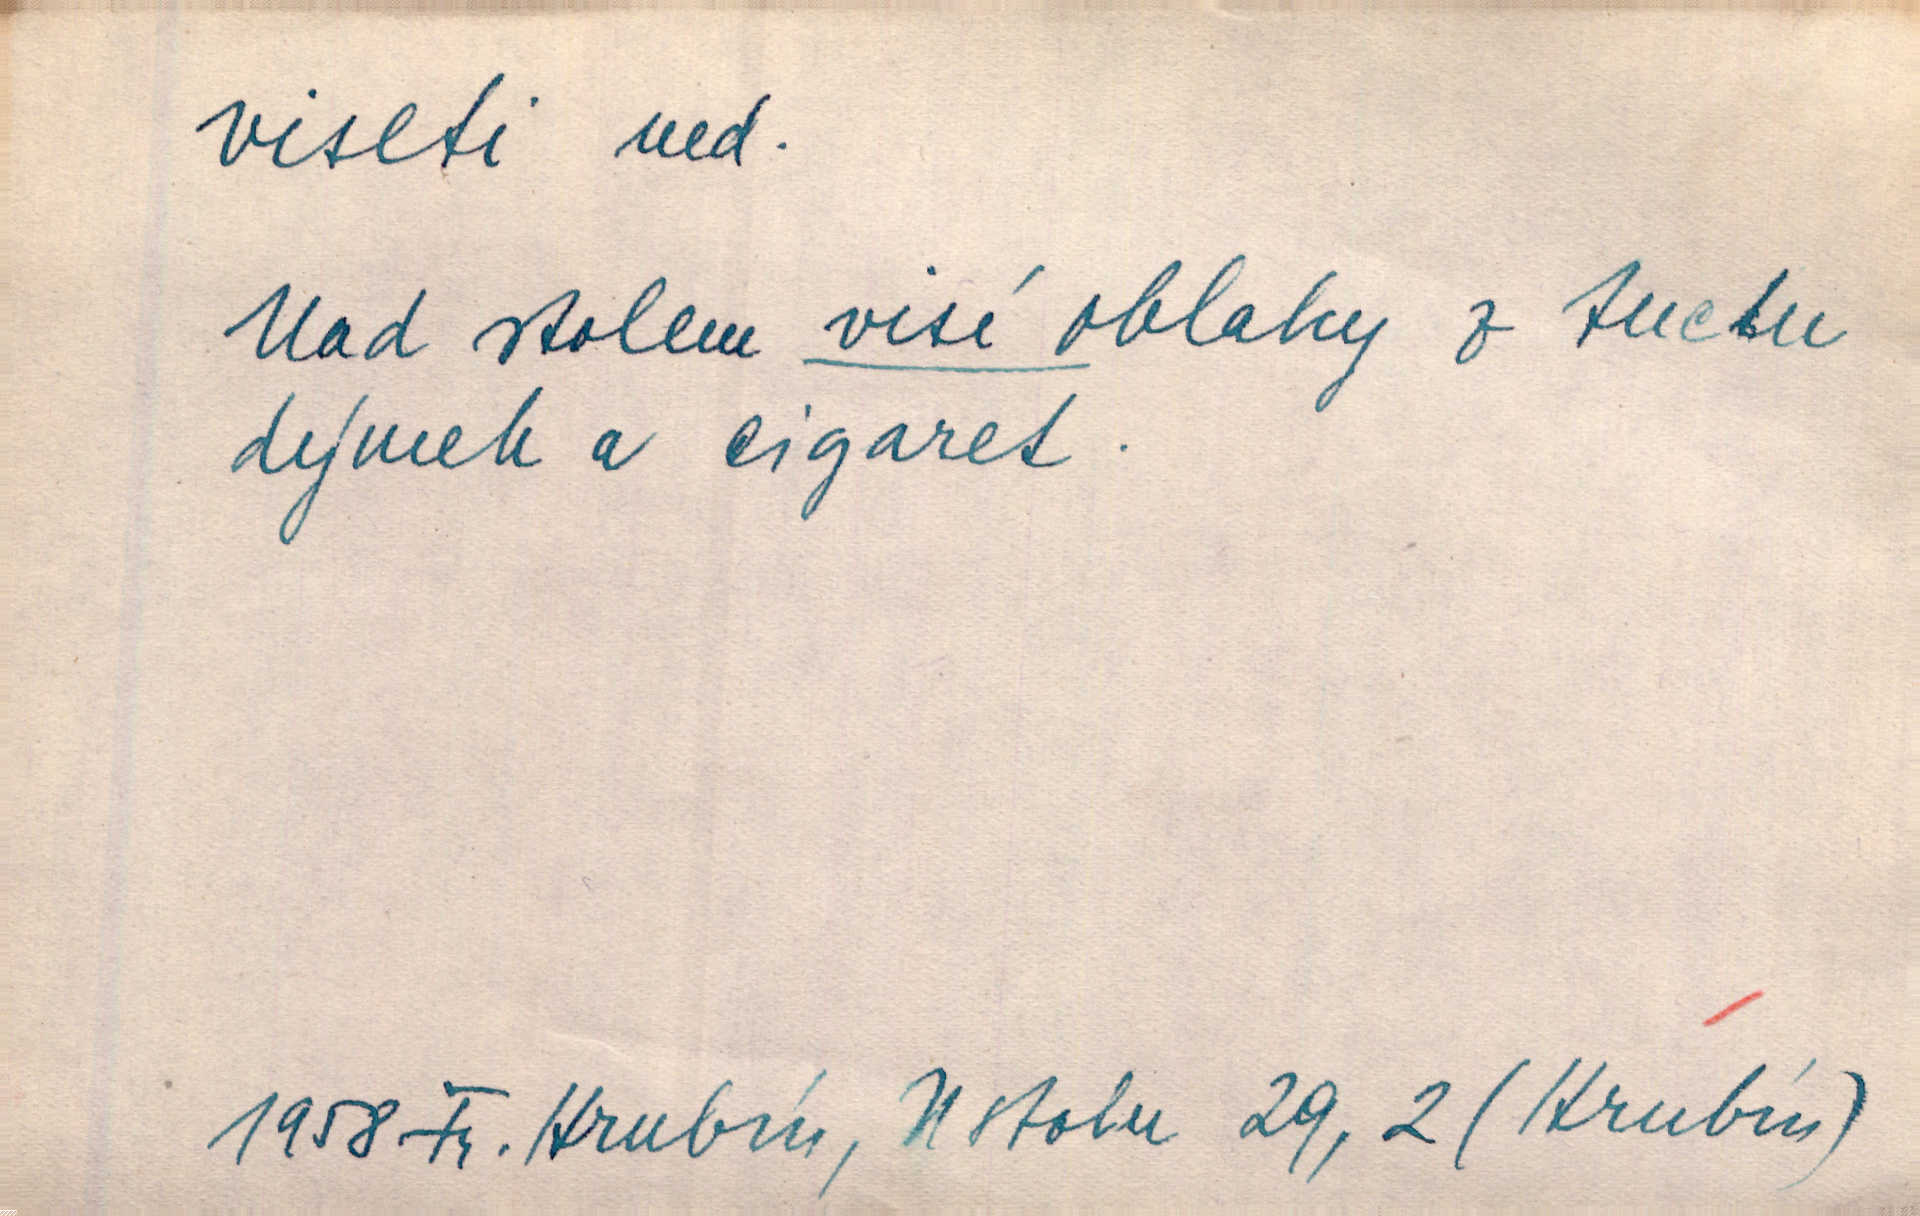 viseti ned.
Nad stolem visí oblaky z tuctu
dýmek a cigaret.
1958 Fr. Hrubín, U stolu 29, 2 (Hrubín)